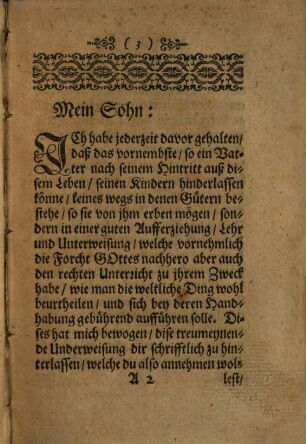 ( 3 )
Mein Sohn:
ICh habe jederzeit davor gehalten/
daß das vornembste/ so ein Vat-
ter nach seinem Hintritt auß di-
sem Leben/ seinen Kindern hinderlassen
könne/ keines wegs in denen Gütern be-
stehe/ so sie von jhm erben mögen/ son-
dern in einer guten Aufferziehung/ Lehr
und Unterweisung/ welche vornehmlich
die Forcht GOttes nachhero aber auch
den rechten Unterricht zu jhrem Zweck
habe/ wie man die weltliche Ding wohl
beurtheilen/ und sich bey deren Hand-
habung gebührend aufführen solle. Di-
ses hat mich bewogen/ dise treumeynen-
de Underweisung dir schrifftlich zu hin-
terlassen/ welche du also annehmen wol-
A 2 lest/